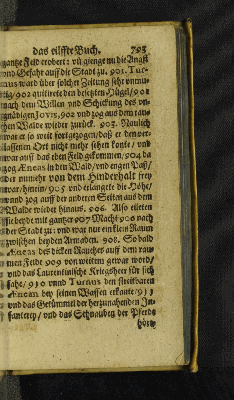 das eilffte Buch. 793
gantze Feld erobert: vñ gienge nu die Angst
vnd Gefahr auff die Stadt zu. 901. Tur-
nus ward über solcher Zeitung sehr vnmu-
tig/ 902 quitirete den besetzten Hügel/ 901
nach dem Willen und Schickung des vn-
gnädigen Jovis, 902 vnd zog aus dem rau-
hen Walde wieder zurück. 903. Naulich
war er so weit fortgezogen/ daß er den ver-
lassenen Ort nicht mehr sehen konte/ vnd
war auff das eben Feld gekommen/ 904 da
zog Æneas in den Wald/ vnd engen Paß/
der nunmehr von dem Hinderhalt frey
war/ hinein/ 905 vnd erlangete die Höhe/
vnd zog auff der anderen Seiten aus dem
Walde wieder hinaus. 906. Also eileten
sie beyde mit gantzer 907 Macht 906 nach
der Stadt zu: vnd war nur ein klein Raum
zwischen beyden Armeben. 908. So bald
Æneas des dicken Rauches auff dem rau-
men Felde 909 von weitem gewar word/
vnd das Laurentinische Kriegsheer für sich
sahe/ 910 vnd Turnus den streitbaren
Æneam bey seinen Waffen erkante/ 911
vnd das Getümmel der herzunahenden In-
fanterey/ vnd das Schnauben der Pferde
höre